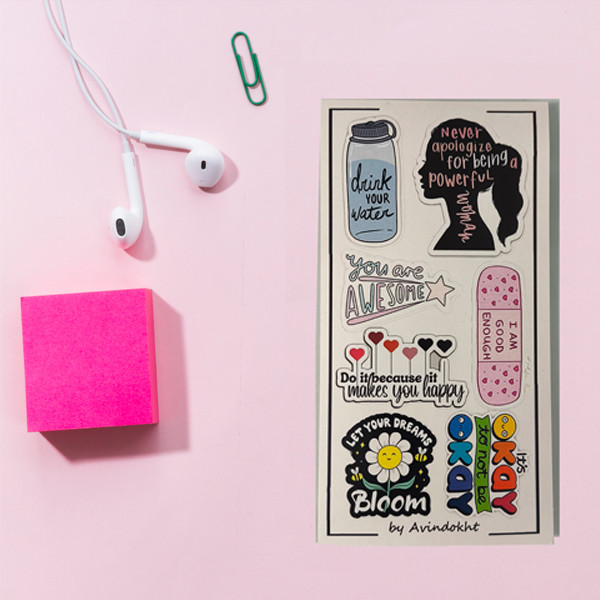 drink
YOUR
water
Never
apologize
for being a
powerful
woman
You are
AWESOME
I AM
GOOD
ENOUGH
Do it because it
makes you happy
LET YOUR DREAMS
Bloom
It's
OKAY
to not be
OKAY
by Avindokht